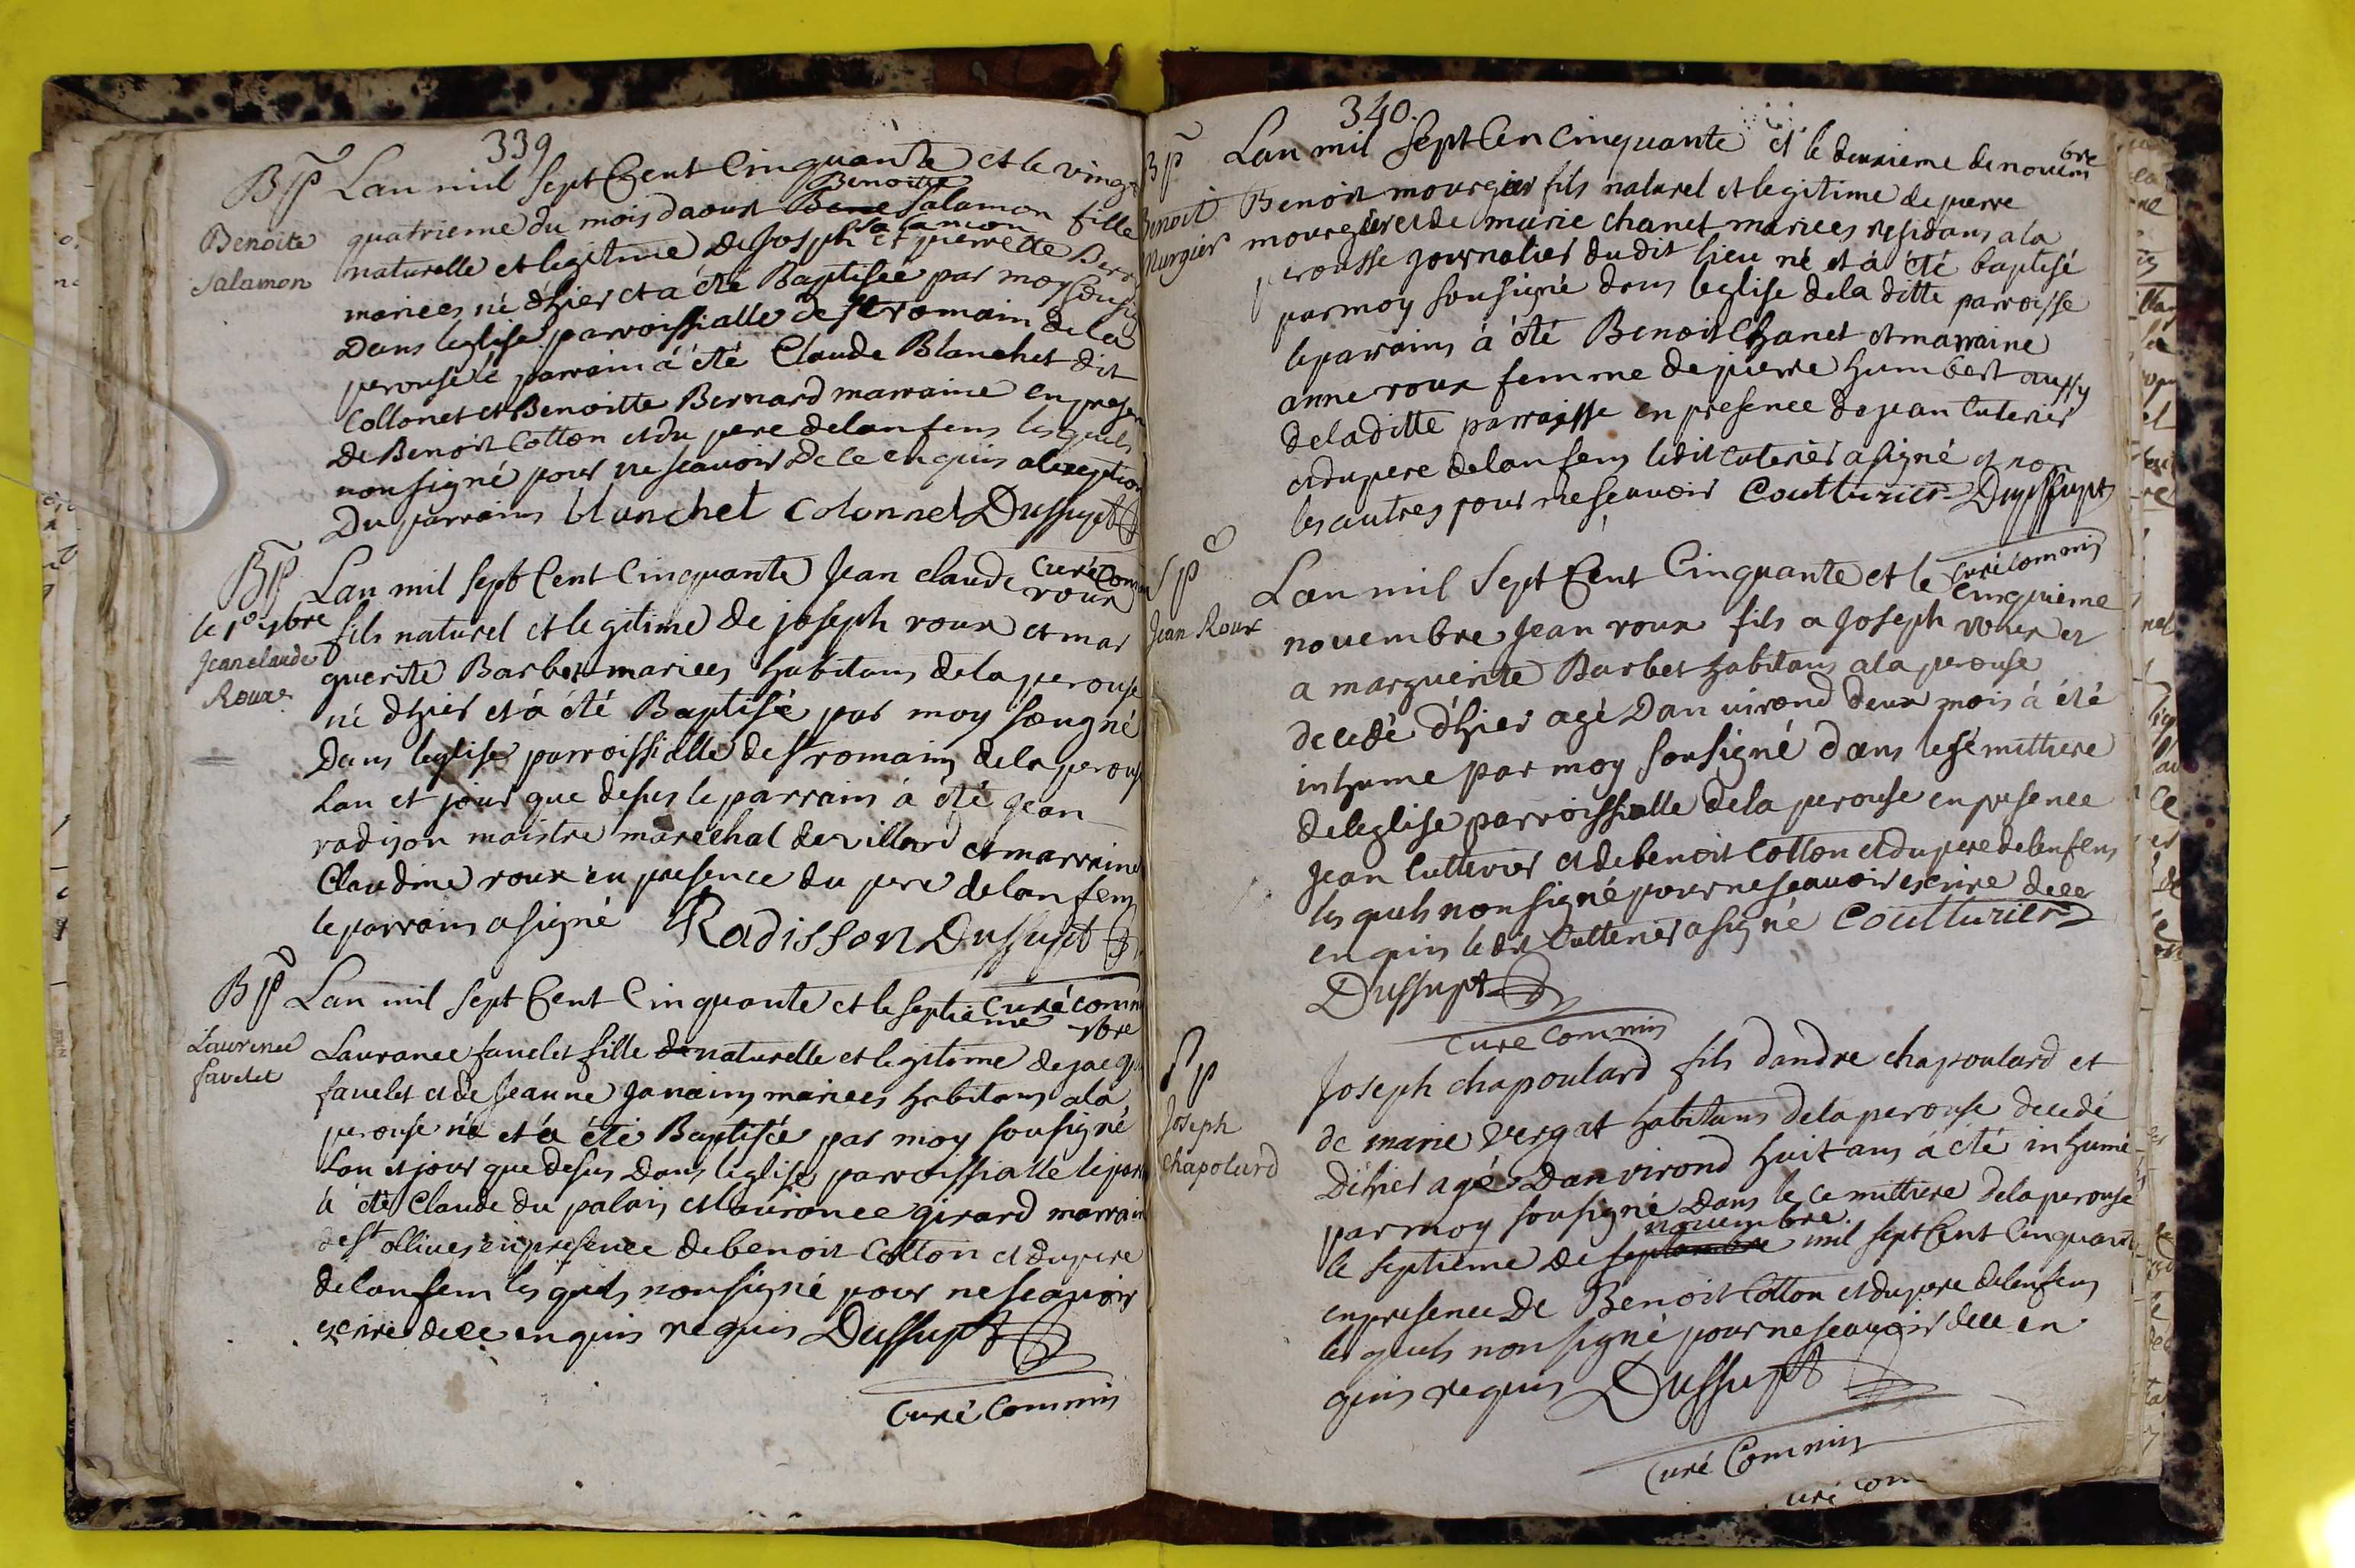 339
Bp Lan mil sept Cent Cinquante et le vingt
Benoite
quatrieme du mois daoust Bene Salamon fille
Benoite
Salamon
salamon
naturelle et legitime de Josph et pierrette Ber
mariees né dhier et a été Baptisée par moy sousig
Dans leglise parroissialle de st romain de la
perouse parrain à été Claude Blanchet dit
Collonet et Benoitte Bernard marraine en presen
de Benoit Cotton et du pere delanfens lesquels
nonsigné pour ne scavoir De ce enquis alexeption
Du parrains blanchet Colonnel Dussupt
curé Comm
Bp Lan mil sept Cent Cinquante Jean claude roux
le 1er 7bre
Jean claude
Roux
fils naturel et legitime de joseph roux et mar
guerite Barbet mariees habitans de la perouse
né dhier et à été Baptisé par moy sousigné
Dans leglise parroissialle de st romain de la perouse
Lan et jour que desus le parrains à été jean
radison maistre maréchal de villard et marraine
Claudine roux en presence du pere delanfens
le parrains a signé Radisson Dussupt
curé comm
Bp Lan mil sept Cent Cinquante et le septieme 7bre
Laurence
favelet
Laurance favelet fille de naturelle et legitime de jacq
favelet et de Jeanne Janains mariees habitans ala
perouse né et à été Baptisée par moy sousigné
Lan et jour que desus Dans leglise parroissialle le par
à été Claude du palais et laurance girard marrain
de st ollives en presence de benoit Cotton et du pere
delanfens lesquels nonsigné pour ne scavoir
escrire de ce enquis requis Dussupt
Curé Commis
340
Bp Lan mil sept Cen Cinquante et le deuxieme de novembre
Benoit
Murgier
Benoit mourgier fils naturel et legitime de pierre
mourgier et de marie chanet mariees residans a la
perousse journalier du dit lieu né et à été baptisé
par moy sousigné dans leglise de la ditte parroisse
le parrains à été Benoit Chanet et marraine
anne roux femme de pierre humbert aussy
de la ditte parroisse en presence de jean Cuterier
et du pere delanfens ledit Cuterier a signé et non
les autres pour ne scavoir Coutturier Dussupt
curé Commis
Sp Lan mil Sept Cent Cinquante et le Cinquieme
Jean Roux
novembre Jean roux fils a Joseph roux et
a marguerite Barbet habitans a la perouse
decedé dhier agé Dan virond deux mois à été
inhume par moy sousigné dans le semittiere
de leglise parroissialle de la perouse en presence
Jean Cutterier et de benoit Cotton et du pere delenfens
les quels nonsigné pour ne scavoir escrire de ce
enquis ledit Cutterier a signé Coutturier
Dussupt
Curé Commis
Sp
Joseph
chapolard
Joseph chapoulard fils dandre chapoulard et
de marie vergat habitans de la perouse decedé
Déhier agé Dan virond huit ans à été inhumé
par moy sousigné dans le cemittiere de la perouse
novembre
le septieme de septembre mil sept Cent Cinquant
en presence De Benoit Cotton et du pere delenfens
les quels nonsigné pour ne scavoir de ce en
quis requis Dussupt
Curé Commis
curé com